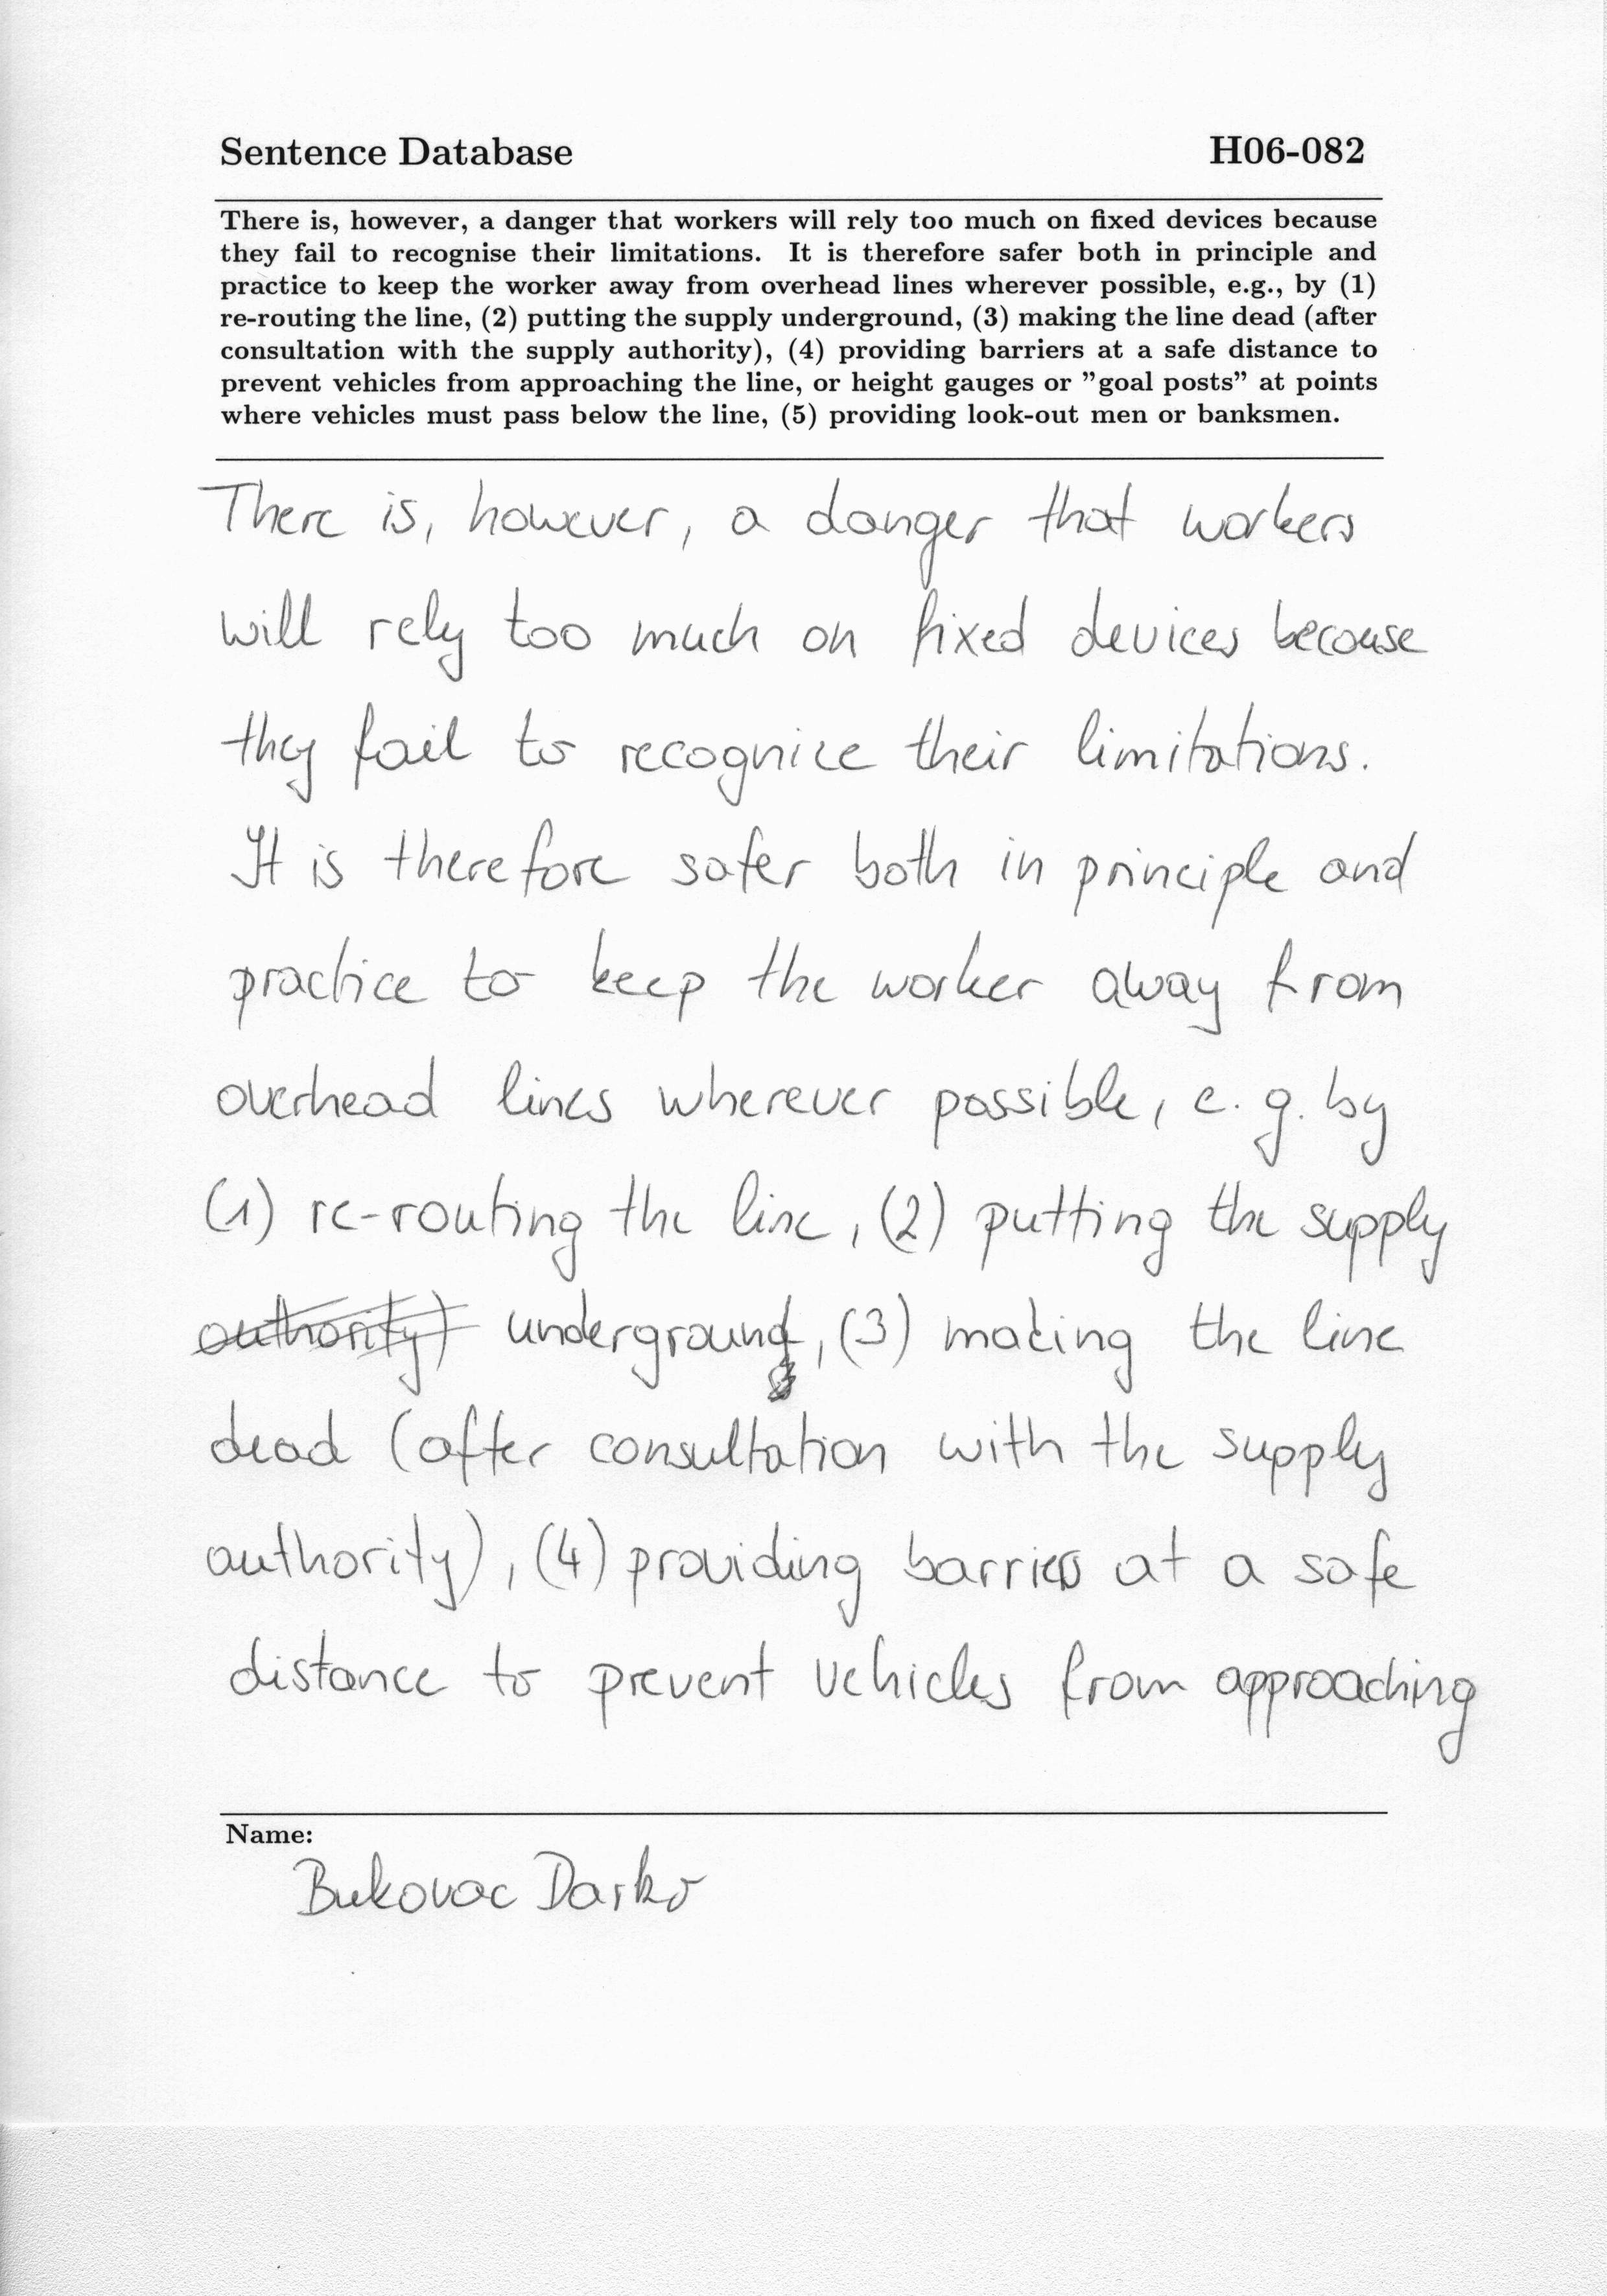 Sentence Database H06-082
There is, however, a danger that workers will rely too much on fixed devices because
they fail to recognise their limitations. It is therefore safer both in principle and
practice to keep the worker away from overhead lines wherever possible, e.g., by (1)
re-routing the line, (2) putting the supply underground, (3) making the line dead (after
consultation with the supply authority), (4) providing barriers at a safe distance to
prevent vehicles from approaching the line, or height gauges or "goal posts" at points
where vehicles must pass below the line, (5) providing look-out men or banksmen.
There is, however, a danger that workers
will rely too much on fixed devices because
they fail to recognice their limitations.
It is therefore safer both in principle and
practice to keep the worker away from
overhead lines wherever possible, e. g. by
(1) re-routing the line, (2) putting the supply
authority) underground, (3) making the line
dead (after consultation with the supply
authority), (4) providing barriers at a safe
distance to prevent vehicles from approaching
Name:
Bukovac Darko